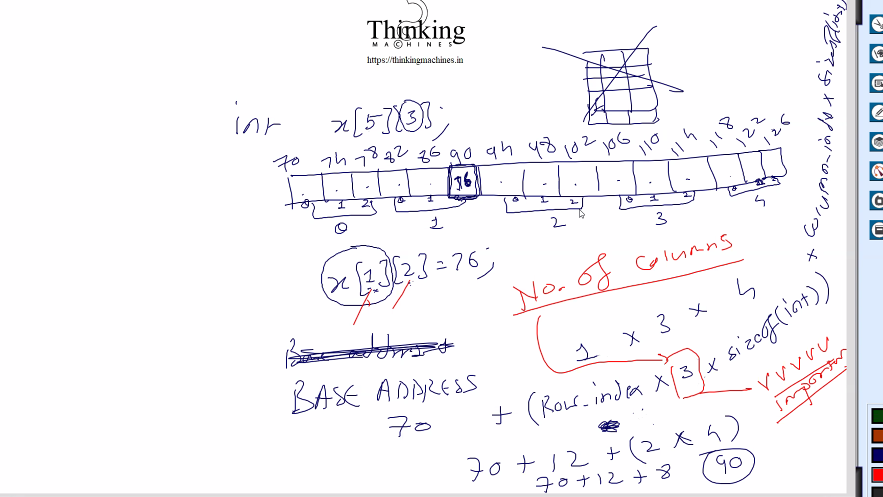 Thinking
MACHINES
https://thinkingmachines.in
int x[5][3];
70 74 78 82 86 90 94 98 102 106 110 114 118 122 126
76
0 1 2 0 1 2 0 1 2 0 1 2 0 1 2
0 1 2 3 4
x[1][2]=76;
No. of columns
1 x 3 x 4
BASE ADDRESS + (Row_index x 3 x sizeof(int)) + column_index x sizeof(int)
vvvvv
important
70
70 + 12 + (2 x 4)
70+12 + 8 90